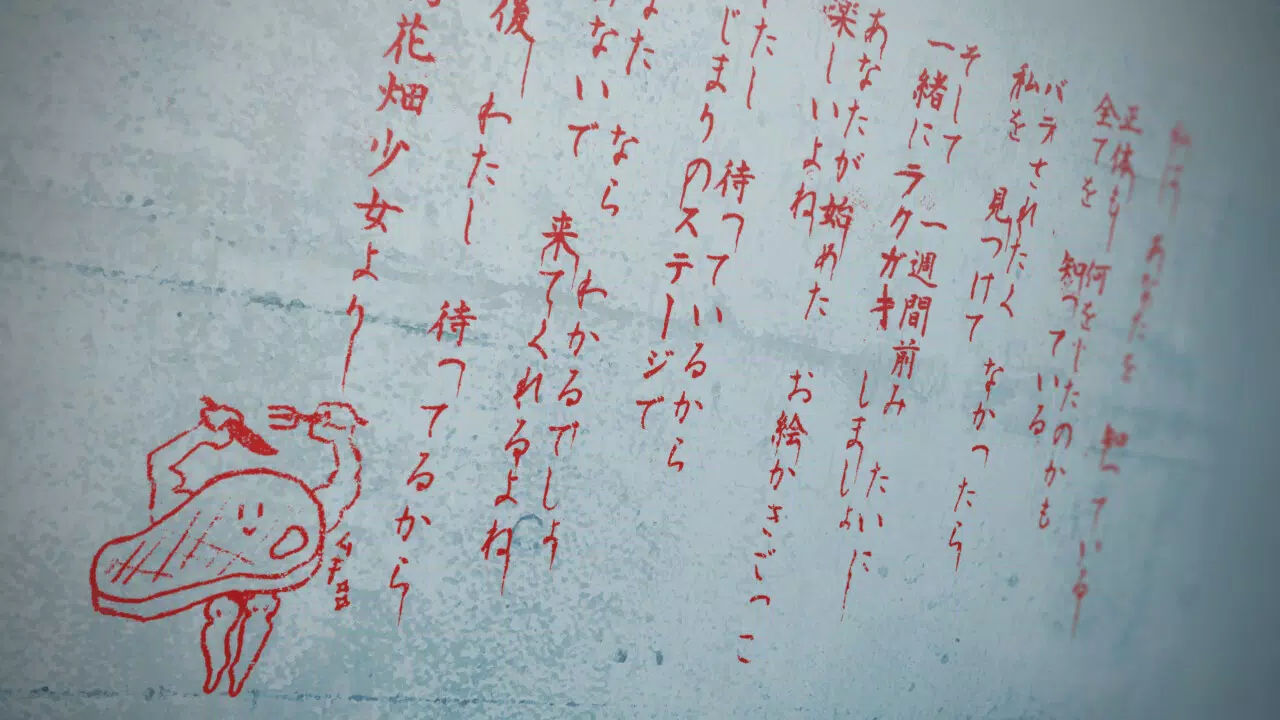 私は あなたを 知っている
正体も 何をしたのかも
全てを 知っている
バラされたく なかったら
私を 見つけて
そして 一週間前みたいに
一緒にラクガキ しましょ
あなたが始めた お絵かきごっこ
楽しいよね
たし 待っているから
じまりのステージで
なた なら わかるでしょ
ないで 来てくれるよね
後ー わたし 待ってるから
花畑少女よりー